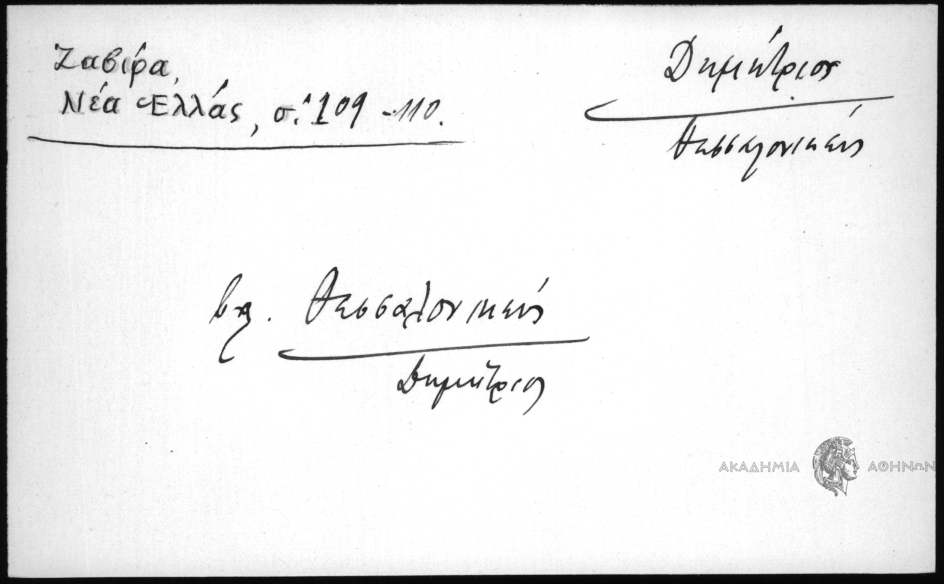 Ζαβίρα,
Νέα Ἑλλάς, σ. 109 -110.
Δημήτριος
Θεσσαλονικεύς
βλ. Θεσσαλονικεύς
Δημήτριος
ΑΚΑΔΗΜΙΑ ΑΘΗΝΩΝ